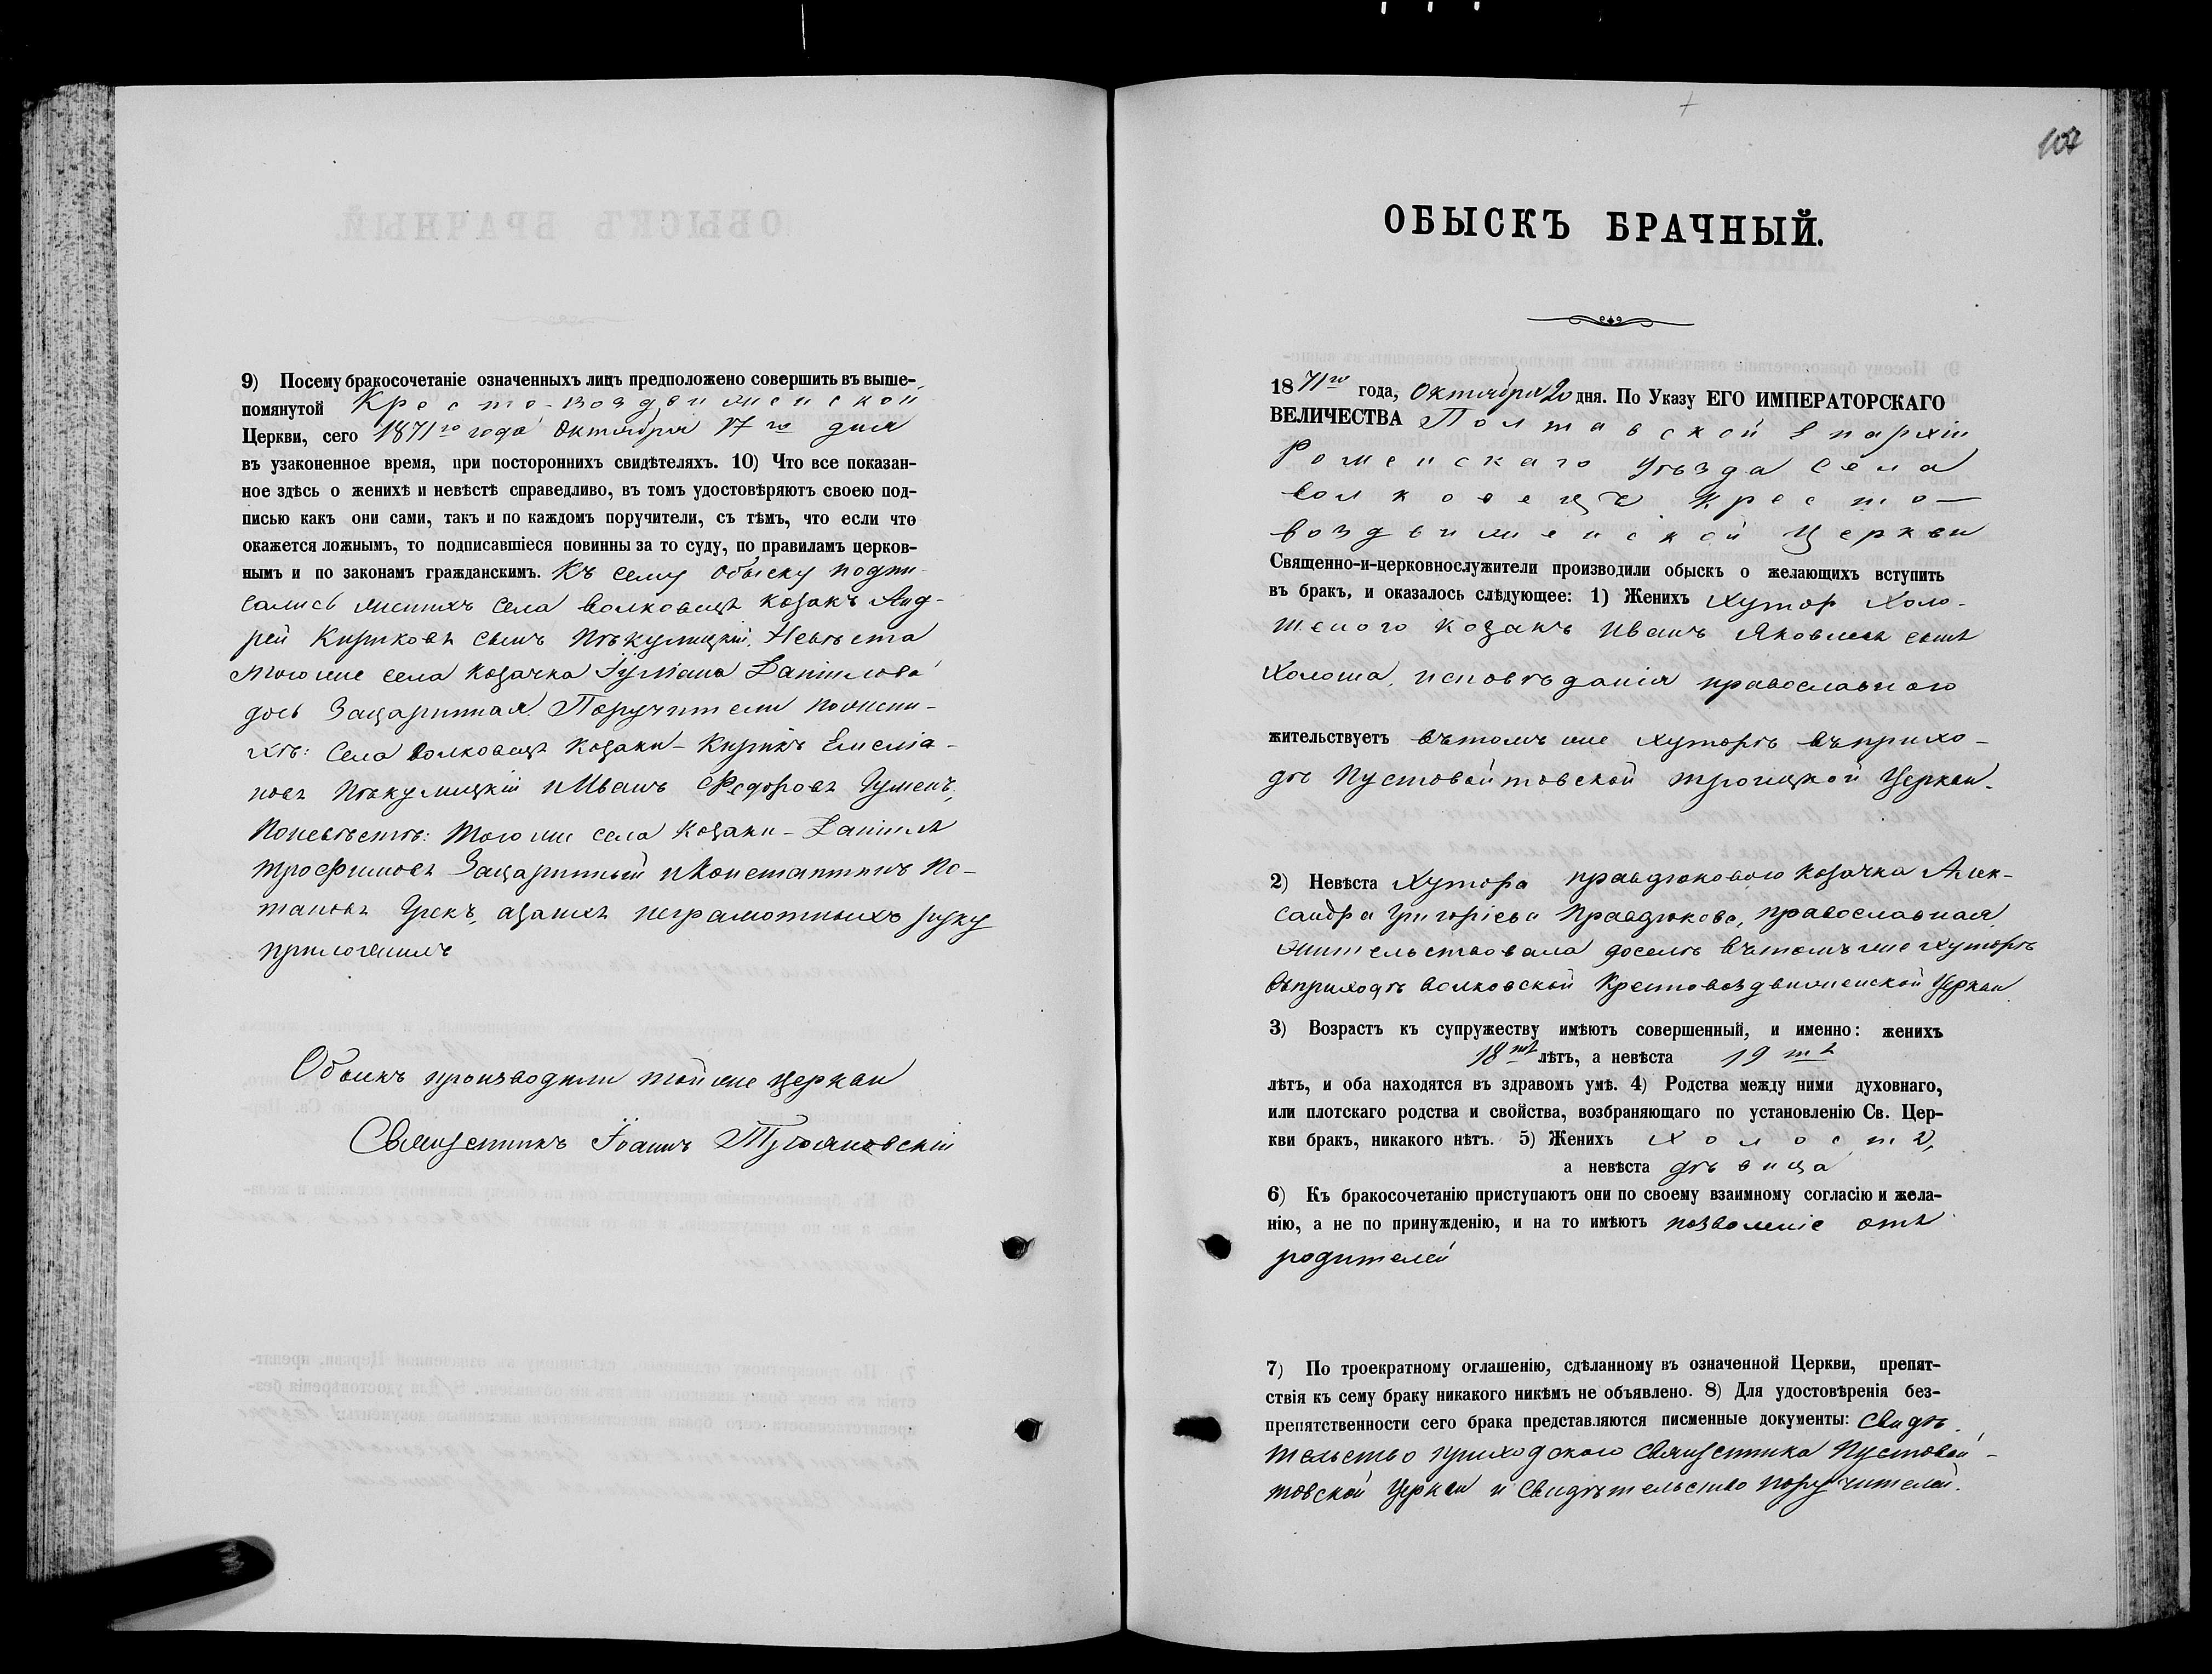 9) Посему бракосочетаніе означенныхъ лицъ предположено совершить въ выше-
помянутой Кресто-Воздвиженской
Церкви, сего 1871го года Октября 17го дня
въ узаконенное время, при постороннихъ свидѣтеляхъ. 10) Что все показан-
ное здѣсь о женихѣ и невѣстѣ справедливо, въ томъ удостовѣряютъ своею под-
писью какъ они сами, такъ и по каждомъ поручители, съ тѣмъ, что если что
окажется ложнымъ, то подписавшіеся повинны за то суду, по правиламъ церков-
нымъ и по законамъ гражданскимъ. Къ сему обыску подпи-
сались женихъ села Волковецъ козакъ Анд-
рей Кириковъ сынъ Пѣкулицкій, Невѣста
того же села козачка Іуліана Даніилова
дочь Зацаринная. Поручители по жени-
хѣ: села Волковецъ козаки - Кирикъ Емеліа-
новъ Пѣкулицкій и Иванъ Федоровъ Гуменъ,
По невѣстѣ: того же села козаки - Даніилъ
Трофимовъ Зацаринный и Константинъ По-
таповъ Грекъ, а за нихъ неграмотныхъ руку
приложилъ
Обыскъ производили той же церкви
Священникъ Іоаннъ
108
ОБЫСКЪ БРАЧНЫЙ.
1871го года, Октября 20 дня. По Указу ЕГО ИМПЕРАТОРСКАГО
ВЕЛИЧЕСТВА Полтавской Епархіи
Роменскаго уѣзда села
Волковецъ Кресто-
воздвиженской Церкви
Священно-и-церковнослужители производили обыскъ о желающихъ вступить
въ бракъ, и оказалось слѣдующее: 1) Женихъ Хутор Холо-
шеного козакъ Иванъ Яковлевъ сынъ
Холоша, исповѣданія православного
жительствуетъ въ томъ же хуторѣ въ прихо-
дѣ Пустовойтовской Троицкой Церкви.
2) Невѣста Хутора Правдюкового козачка Алек-
сандра Григорієва Правдюкова, православная
жительствовала доселѣ въ томъ же хуторѣ
въ приходѣ Волковской Крестовоздвиженской Церкви
3) Возрастъ къ супружеству имѣютъ совершенный, и именно: женихъ
18ть лѣтъ, а невѣста 19ть
лѣтъ, и оба находятся въ здравомъ умѣ. 4) Родства между ними духовнаго,
или плотскаго родства и свойства, возбраняющаго по установленію Св. Цер-
кви бракъ, никакого нѣтъ. 5) Женихъ холостъ,
а невѣста дѣвица
6) Къ бракосочетанію приступаютъ они по своему взаимному согласію и жела-
нію, а не по принужденію, и на то имѣютъ позволеніе отъ
родителей
7) По троекратному оглашенію, сдѣланному въ означенной Церкви, препят-
ствія къ сему браку никакого никѣмъ не объявлено. 8) Для удостовѣренія без-
препятственности сего брака представляются писменные документы: Свидѣ-
тельство приходского Священника Пустовой-
товской Церкви и Свидѣтельство поручителей.